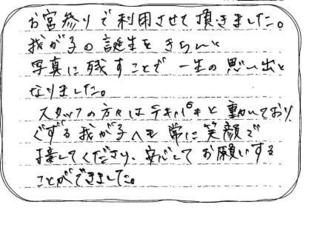 お宮参りで利用させて頂きました。
我が子の誕生をきちんと
写真に残すことで一生の思い出と
なりました。
スタッフの方々はテキパキと動いており
ぐずる我が子へも常に笑顔で
接してくださり、安心してお願いする
ことができました。